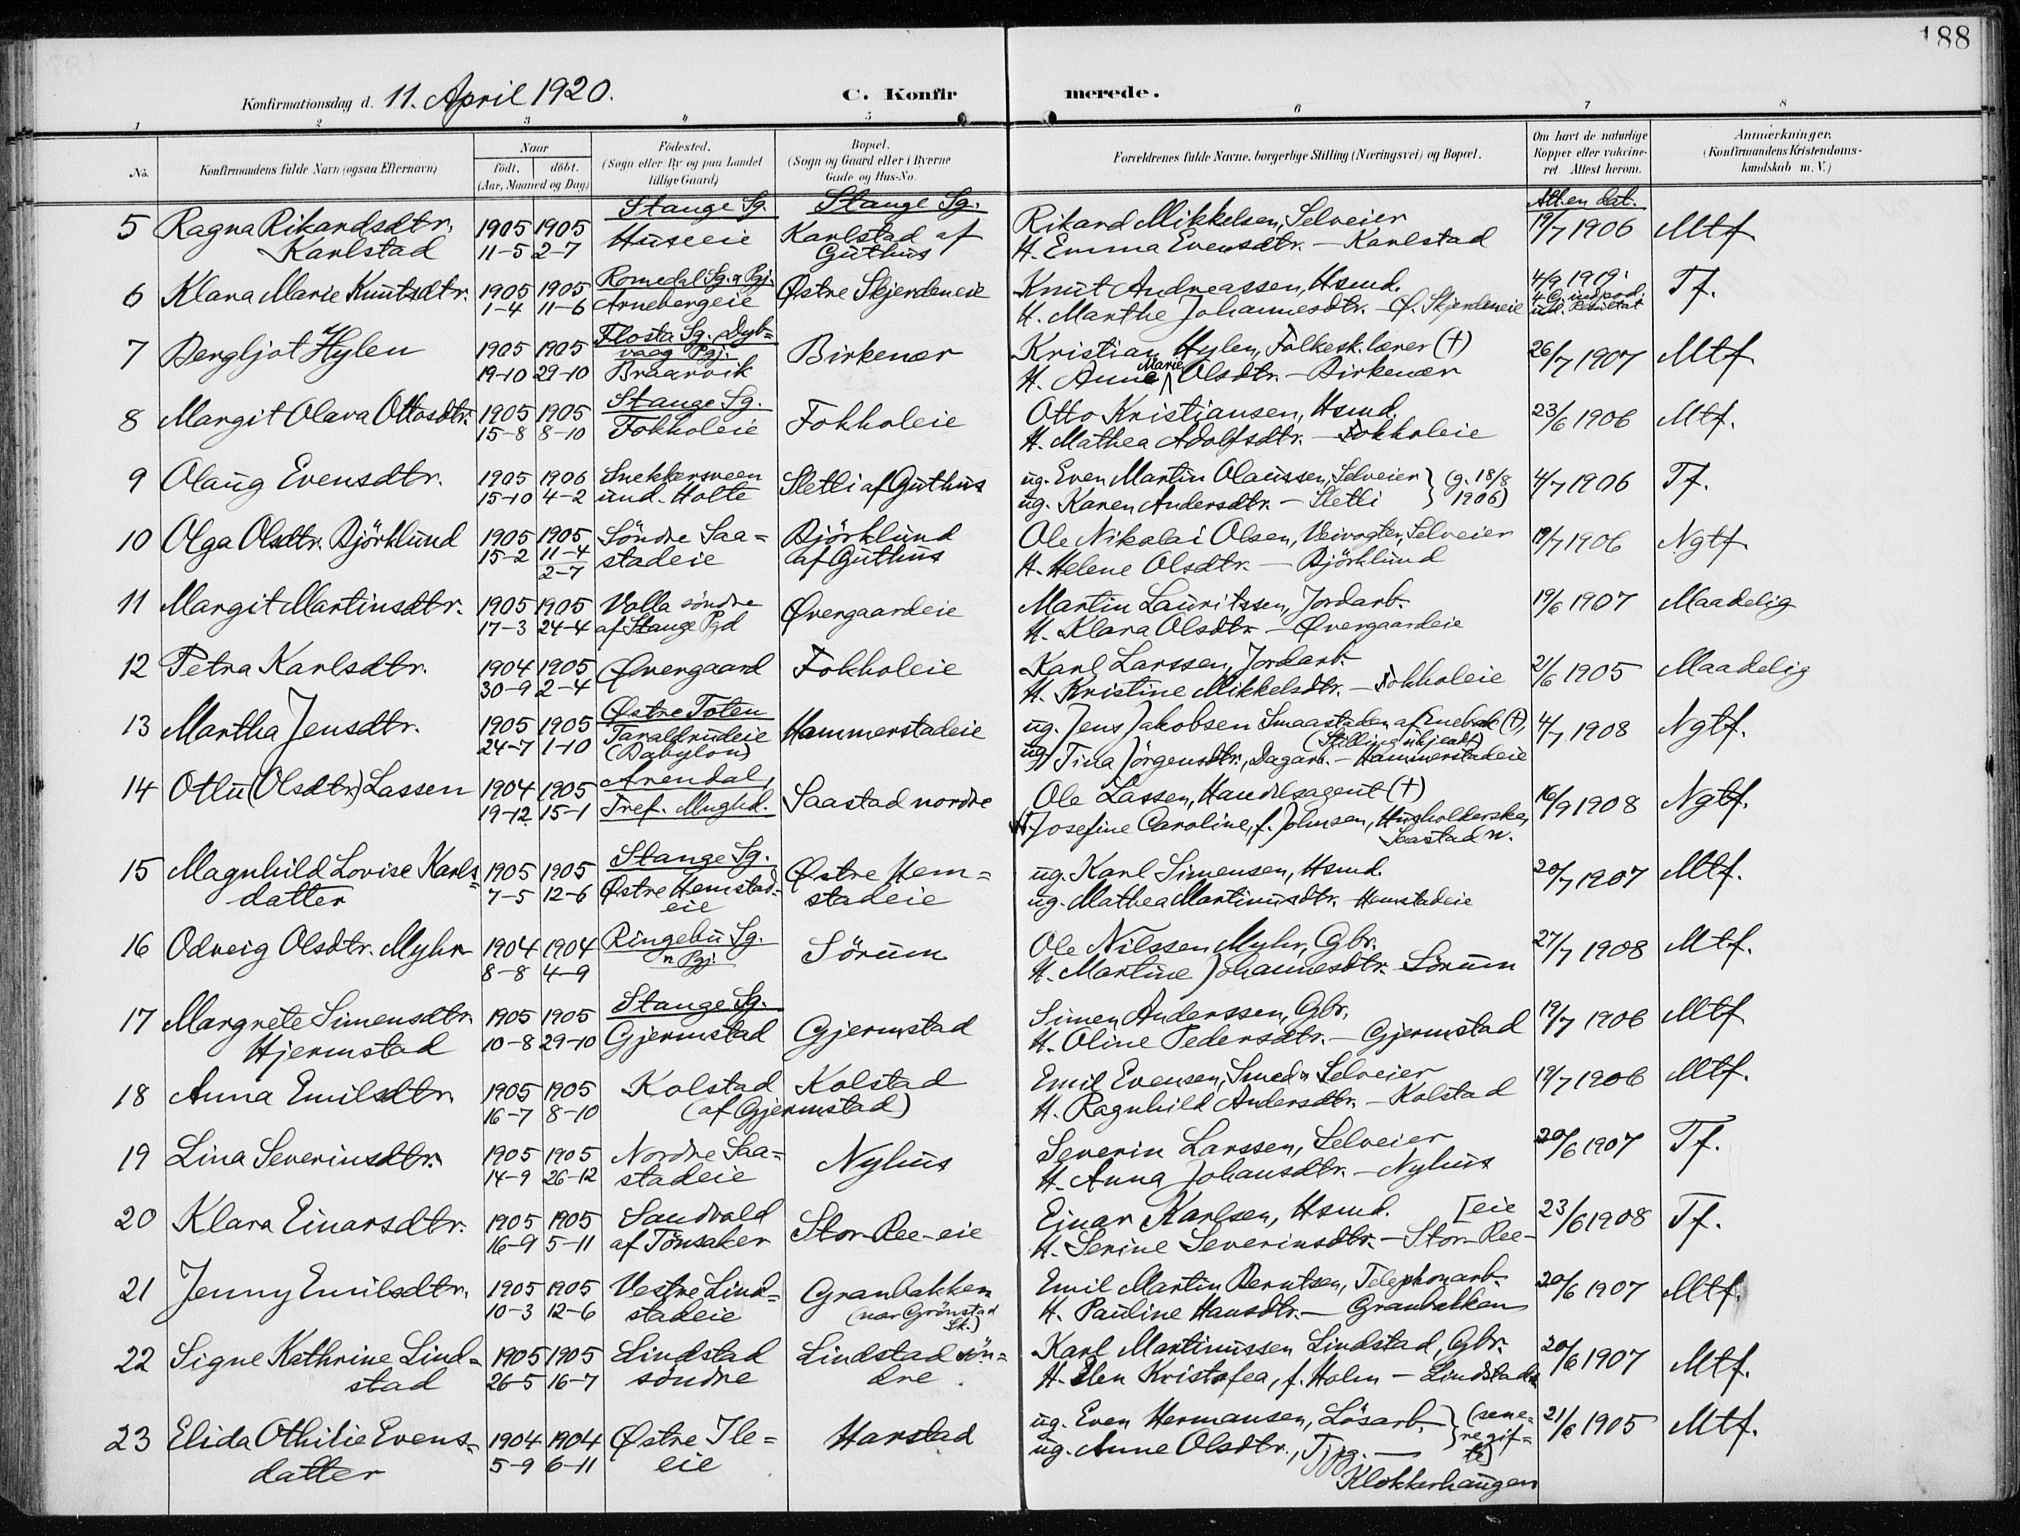 188
Konfirmationsdag d. 11. April 1920. C. Konfirmerede.
1 2 3 4 5 6 7 8
No. Konfirmandens fulde Navn (ogsaa Efternavn) Naar födt. döbt. (Aar, Maaned og Dag) Födested. (Sogn eller By og paa Landet tillige Gaard) Bopæl. (Sogn og Gaard eller i Byerne Gade og Hus-No. Forældrenes fulde Navne, borgerlige Stilling (Næringsvei) og Bopæl. Om havt de naturlige Kopper eller vakcineret Attest herom. Anmærkninger. (Konfirmandens Kristendomskundskab m. V.)
Stange Sg. Stange Sg. Att.en dat.
5 Ragna Rikardsdtr. 1905 1905 Huseeie Karlstad af Rikard Mikkelsen, Selveier 19/7 1906 Mtf
Karlstad 11-5 2-7 Guthus H. Emma Evensdtr. – Karlstad
6 Klara Marie Knutsdtr. 1905 1905 Romedal Sg. & Pgj. Østre Skjerdeneie Knut Andreassen, Hsmd. 4/9 1919. Tf.
1-4 11-6 Arnebergeie H. Marthe Johannesdtr. – Ø. Skjerdeneie
7 Bergljot Hylen 1905 1905 Flosta Sg. Dyb- Birkenær Kristian Hylen, Folkesk.lærer (†) 26/7 1907 Mtf
19-10 29-10 vaag Pgj. Braarvik H. Anne Marie Olsdtr. – Birkenær
8 Margit Olava Ottosdtr. 1905 1905 Stange Sg. Fokholeie Otto Kristiansen, Hsmd. 23/6 1906 Mtf.
15-8 8-10 Fokholeie H. Mathea Adolfsdtr. – Fokholeie
9 Olaug Evensdtr. 1905 1906 Snekkersveen Sletli af Guthus ug. Even Martin Olaussen, Selveier } (g. 18/8 4/7 1906 Tf.
15-10 4-2 und. Holte ug. Karen Andersdtr. – Sletli 1906)
10 Olga Olsdtr. Björklund 1905 1905 Söndre Saa- Björklund Ole Nikolai Olsen, Veivogter, Selveier 19/7 1906 Ngtf.
15-2 11-4 stadeie af Guthus H. Helene Olsdtr. – Björklund
2-7
11 Margit Martinsdtr. 1905 1905 Volla söndre Øvergaardeie Martin Lauritssen, Jordarb. 19/6 1907 Maadelig
17-3 24-4 af Stange Pgd H. Klara Olsdtr. – Øvergaardeie
12 Petra Karlsdtr. 1904 1905 Øvergaard Fokholeie Karl Larssen, Jordarb. 21/6 1905 Maadelig
30-9 2-4 H. Kristine Mikkelsdtr. – Fokholeie
13 Martha Jensdtr. 1905 1905 Østre Toten Hammerstadeie ug. Jens Jakobsen Smaastaden af Enebak (†) 4/7 1908 Ngtf.
24-7 1-10 Taraldrudeie (Stilling ukjendt)
(Babylon) ug. Tina Jörgensdtr., Dagarb. – Hammerstadeie
14 Otlu (Olsdtr.) Lassen 1904 1905 Arendal, Saastad nordre Ole Lassen, Handelsagent (†) 16/9 1908 Ngtf.
19-12 15-1 Tref. Mnghd. H. Josefine Caroline, f. Johnsen, Husholderske,
Saastad n.
15 Magnhild Lovise Karls- 1905 1905 Stange Sg. Østre Hem- ug. Karl Simensen, Hsmd. 20/7 1907 Mtf.
datter 7-5 12-6 Østre Hemstad- stadeie ug. Mathea Martinusdtr. Hemstadeie
eie
16 Odveig Olsdtr. Myhr 1904 1904 Ringebu Sg. Sörum Ole Nilssen Myhr, Gbr. 27/7 1908 Mtf.
8-8 4-9 n Pgj. H. Martine Johannesdtr. Sörum
17 Margrete Simensdtr. 1905 1905 Stange Sg. Gjermstad Simen Anderssen, Gbr. 19/7 1906 Mtf
Hjermstad 10-8 29-10 Gjermstad H. Oline Pedersdtr. – Gjermstad
18 Anna Emilsdtr. 1905 1905 Kolstad Kolstad Emil Evensen, Smed & Selveier 19/7 1906 Mtf.
16-7 8-10 (af Gjermstad) H. Ragnhild Andersdtr. – Kolstad
19 Lina Severinsdtr. 1905 1905 Nordre Saa- Nyhus Severin Larssen, Selveier 20/6 1907 Tf.
14-9 26-12 stadeie H. Anna Johansdtr. – Nyhus
20 Klara Einarsdtr. 1905 1905 Sandvold Stor-Ree-eie Einar Karlsen, Hsmd. [eie 23/6 1908 Tf.
16-9 5-11 af Tönsaker H. Serine Severinsdtr. – Stor-Ree-
21 Jenny Emilsdtr. 1905 1905 Vestre Lind- Granbakken Emil Martin Berntsen, Telephonarb. 20/6 1907 Mtf.
10-3 12-6 stadeie (nær Grönstad Sk.) H. Pauline Hansdtr. – Granbakken
22 Signe Kathrine Lind- 1905 1905 Lindstad Lindstad sön- Karl Martinussen Lindstad, Gbr. 20/6 1907 Mtf.
stad 26-5 16-7 söndre dre H. Elen Kristofea, f. Holm – Lindstad s.
23 Elida Othilie Evens- 1904 1904 Østre Ile- Harstad ug. Even Hermansen, Lösarb. } (sene- 21/6 1905 Mtf.
datter 5-9 6-11 eie ug. Anne Olsdtr., Tjpg. – re gif-
te)
Klokkerhaugen